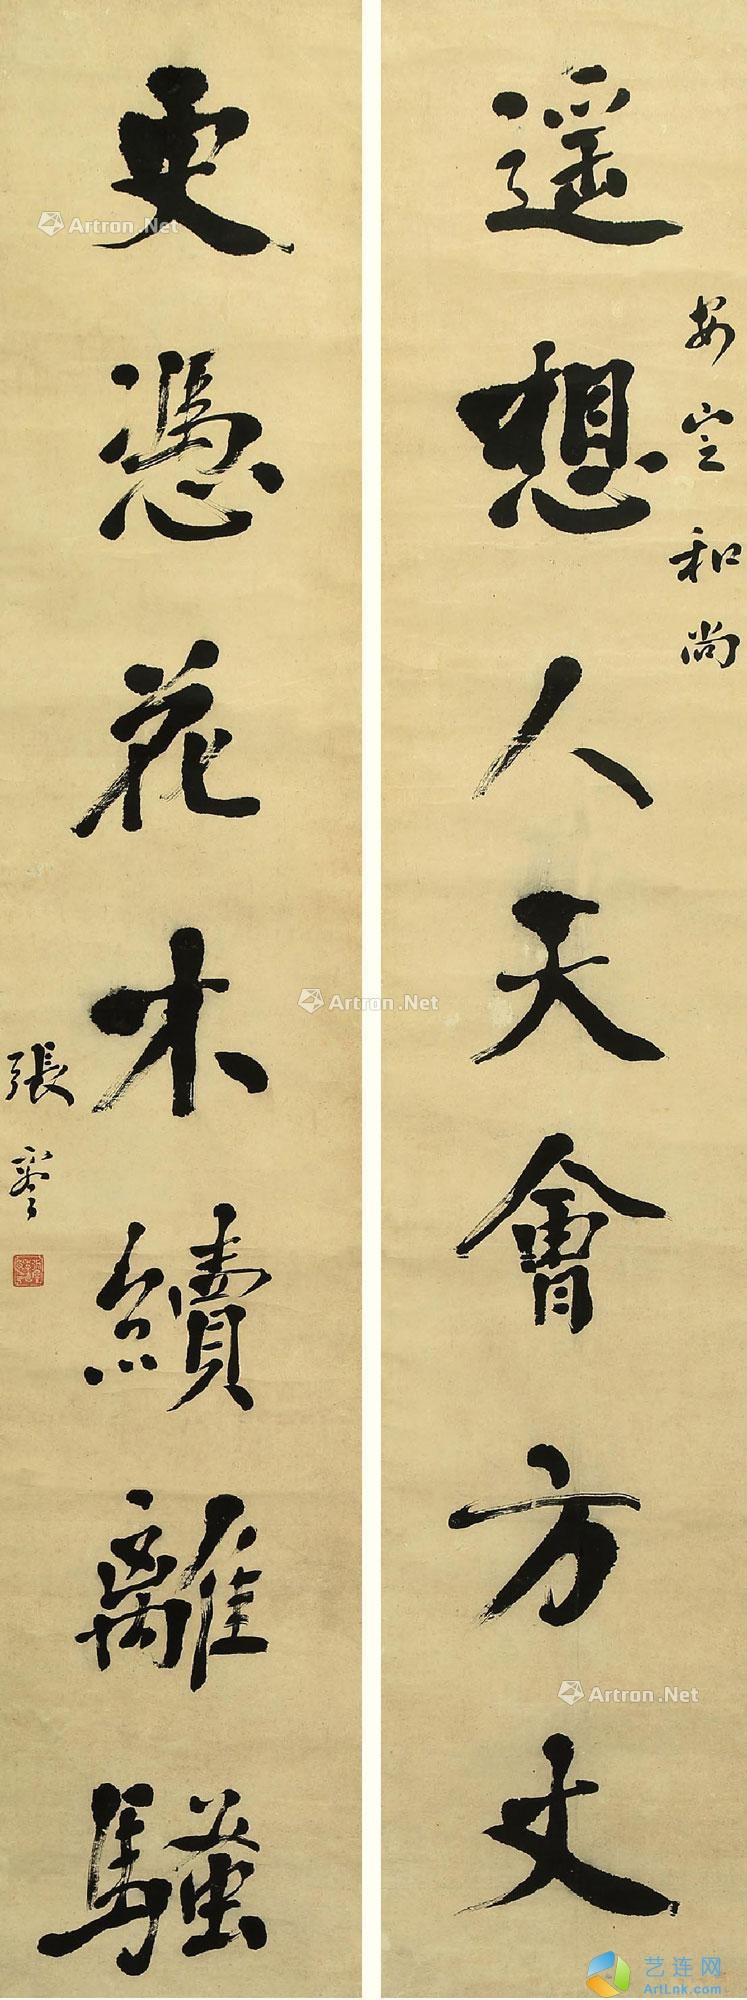 遥想人天會方丈
和尚
更憑花木續離騷
張謇
Artron.Net
Artron.Net
Artron.Net
艺连网
ArtLnk.com